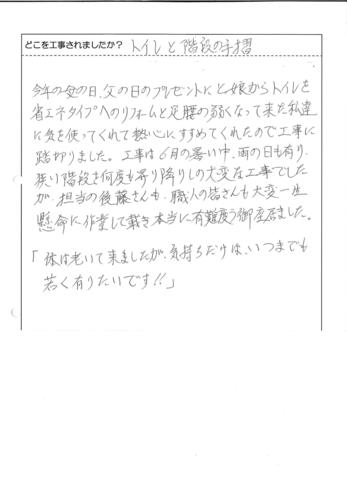 どこを工事されましたか? トイレと階段の手摺
今年の母の日、父の日のプレゼントにと娘からトイレを
省エネタイプへのリフォームと足腰の弱くなって来た私達
に気を使ってくれて熱心にすすめてくれたので工事に
踏切りました。工事は6月の暑い中、雨の日も有り、
狭い階段を何度も昇り降りしの大変な工事でした
が、担当の後藤さんも、職人の皆さんも大変一生
懸命に作業して戴き本当に有難度う御座居ました。
「体は老いて来ましたが、気持ちだけは、いつまでも
若く有りたいです!!」